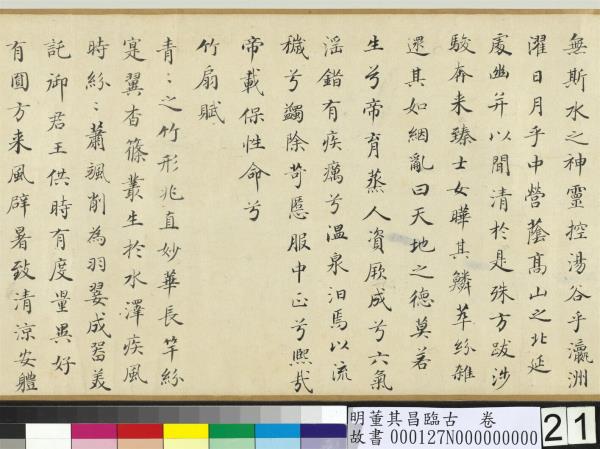 無斯水之神靈控湯谷乎瀛洲
濯日月乎中營蔭高山之北延
處幽并以閒清於是殊方跋涉
駿奔来臻士女曄其鱗萃紛雜
遝其如絪亂曰天地之德莫若
生兮帝育蒸人資厥成兮六氣
淫錯有疾癘兮温泉汨焉以流
穢兮蠲除苛慝服中正兮熙哉
帝載保性命兮
竹扇賦
青〻之竹形兆直妙華長竿紛
寔翼杳篠叢生於水澤疾風
時紛〻蕭颯削為羽翣成器美
託御君王供時有度量異好
有圓方来風辟暑致清涼安體
明董其昌臨古 卷
故書 000127N000000000
21